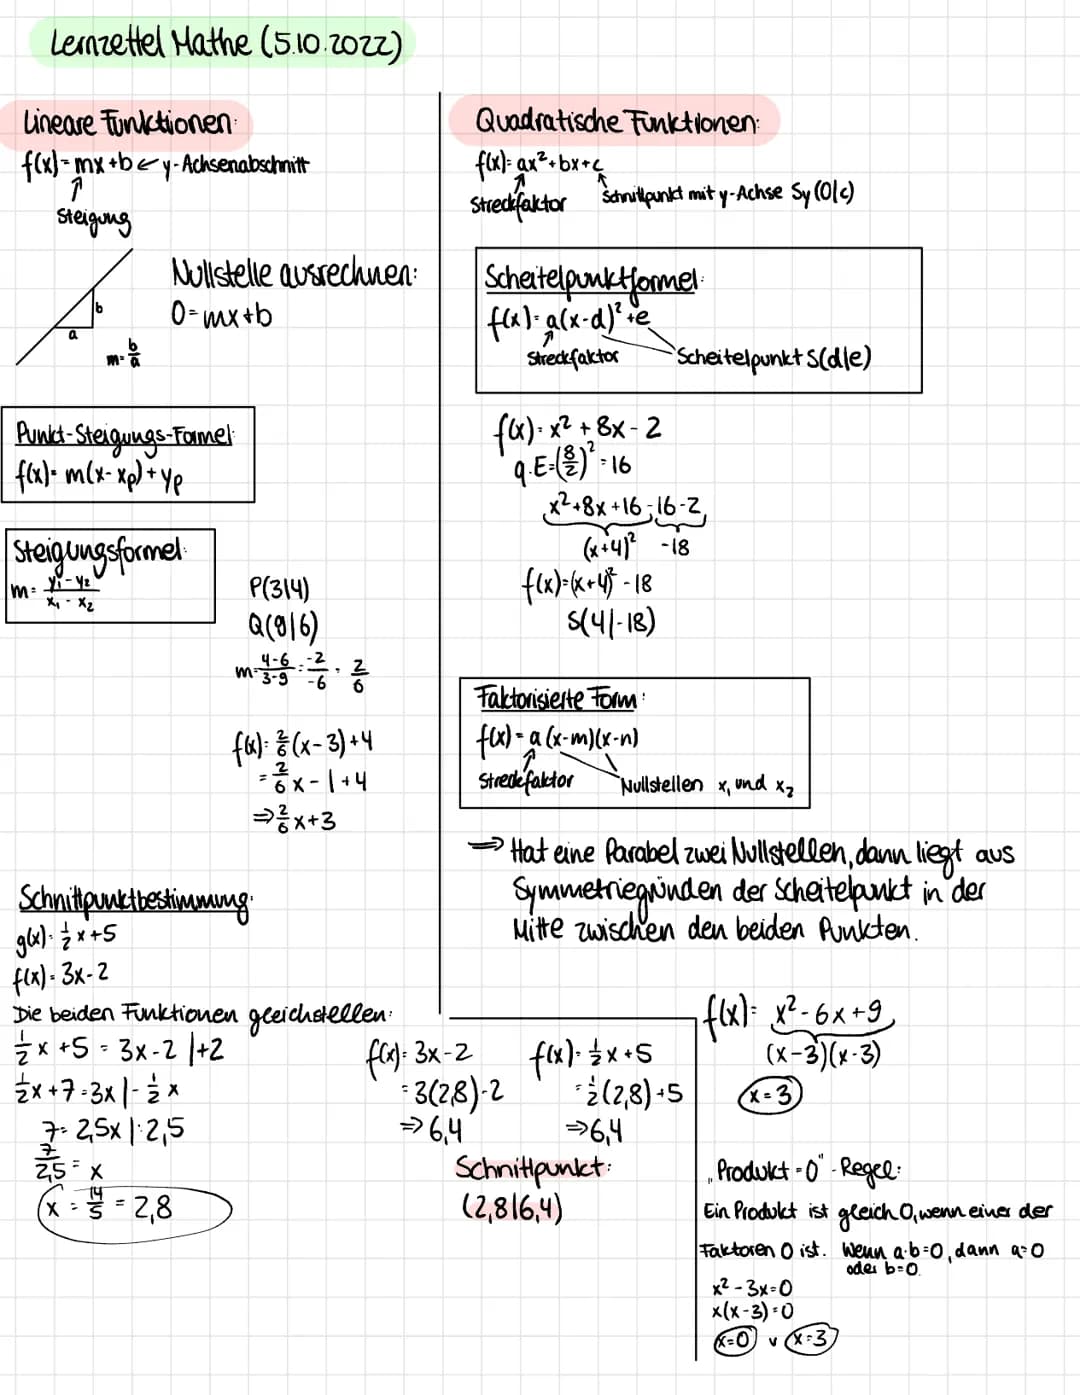 Lernzettel Mathe (5.10.2022)
Lineare Funktionen:
f(x) = mx + b ← y-Achsenabschnitt
↑
Steigung
b
a
m = b/a
Nullstelle ausrechnen:
0 = mx + b
Punkt-Steigungs-Formel:
f(x) = m(x - xₚ) + yₚ
Steigungsformel:
m = (y₁ - y₂)/(x₁ - x₂)
P(3|4)
Q(9|6)
m = (4-6)/(3-9) = -2/-6 = 2/6
f(x) = 2/6 (x-3) + 4
= 2/6 x - 1 + 4
⇒ 2/6 x + 3
Schnittpunktbestimmung:
g(x) = 1/2 x + 5
f(x) = 3x - 2
Die beiden Funktionen gleichstellen:
1/2 x + 5 = 3x - 2 |+2
1/2 x + 7 = 3x | - 1/2 x
7 = 2,5x | : 2,5
7/2,5 = x
x = 14/5 = 2,8
f(x) = 3x - 2
= 3(2,8) - 2
⇒ 6,4
f(x) = 1/2 x + 5
= 1/2 (2,8) + 5
⇒ 6,4
Schnittpunkt:
(2,8|6,4)
Quadratische Funktionen:
f(x) = ax² + bx + c
Streckfaktor
Schnittpunkt mit y-Achse Sy (0|c)
Scheitelpunktformel:
f(x) = a(x-d)² + e
Streckfaktor
Scheitelpunkt S(d|e)
f(x) = x² + 8x - 2
q.E = (8/2)² = 16
x² + 8x + 16 - 16 - 2
(x+4)² -18
f(x) = (x+4)² - 18
S(4|-18)
Faktorisierte Form:
f(x) = a (x-m)(x-n)
Streckfaktor
Nullstellen x₁ und x₂
⇒ Hat eine Parabel zwei Nullstellen, dann liegt aus
Symmetriegründen der Scheitelpunkt in der
Mitte zwischen den beiden Punkten.
f(x) = x² - 6x + 9
(x-3)(x-3)
x = 3
„Produkt = 0" - Regel:
Ein Produkt ist gleich 0, wenn einer der
Faktoren 0 ist. Wenn a·b=0, dann a=0
oder b=0.
x² - 3x = 0
x(x-3) = 0
x=0 v x=3